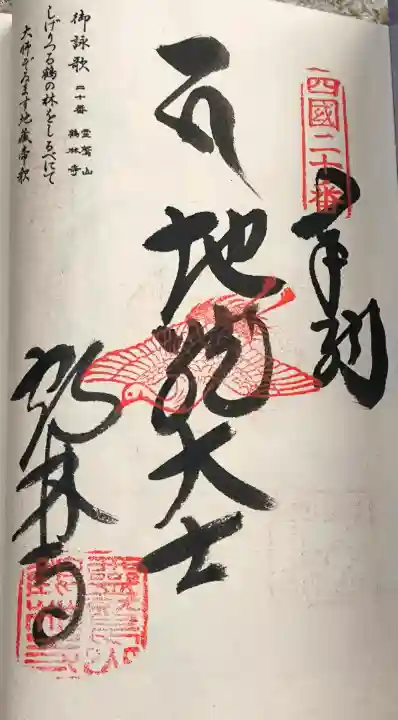 四國二十番
奉納
地蔵大士
鶴林寺
御詠歌 二十番 霊鷲山 鶴林寺
しげりつる鶴の林をしるべにて
大師ぞゐます地蔵帝釈